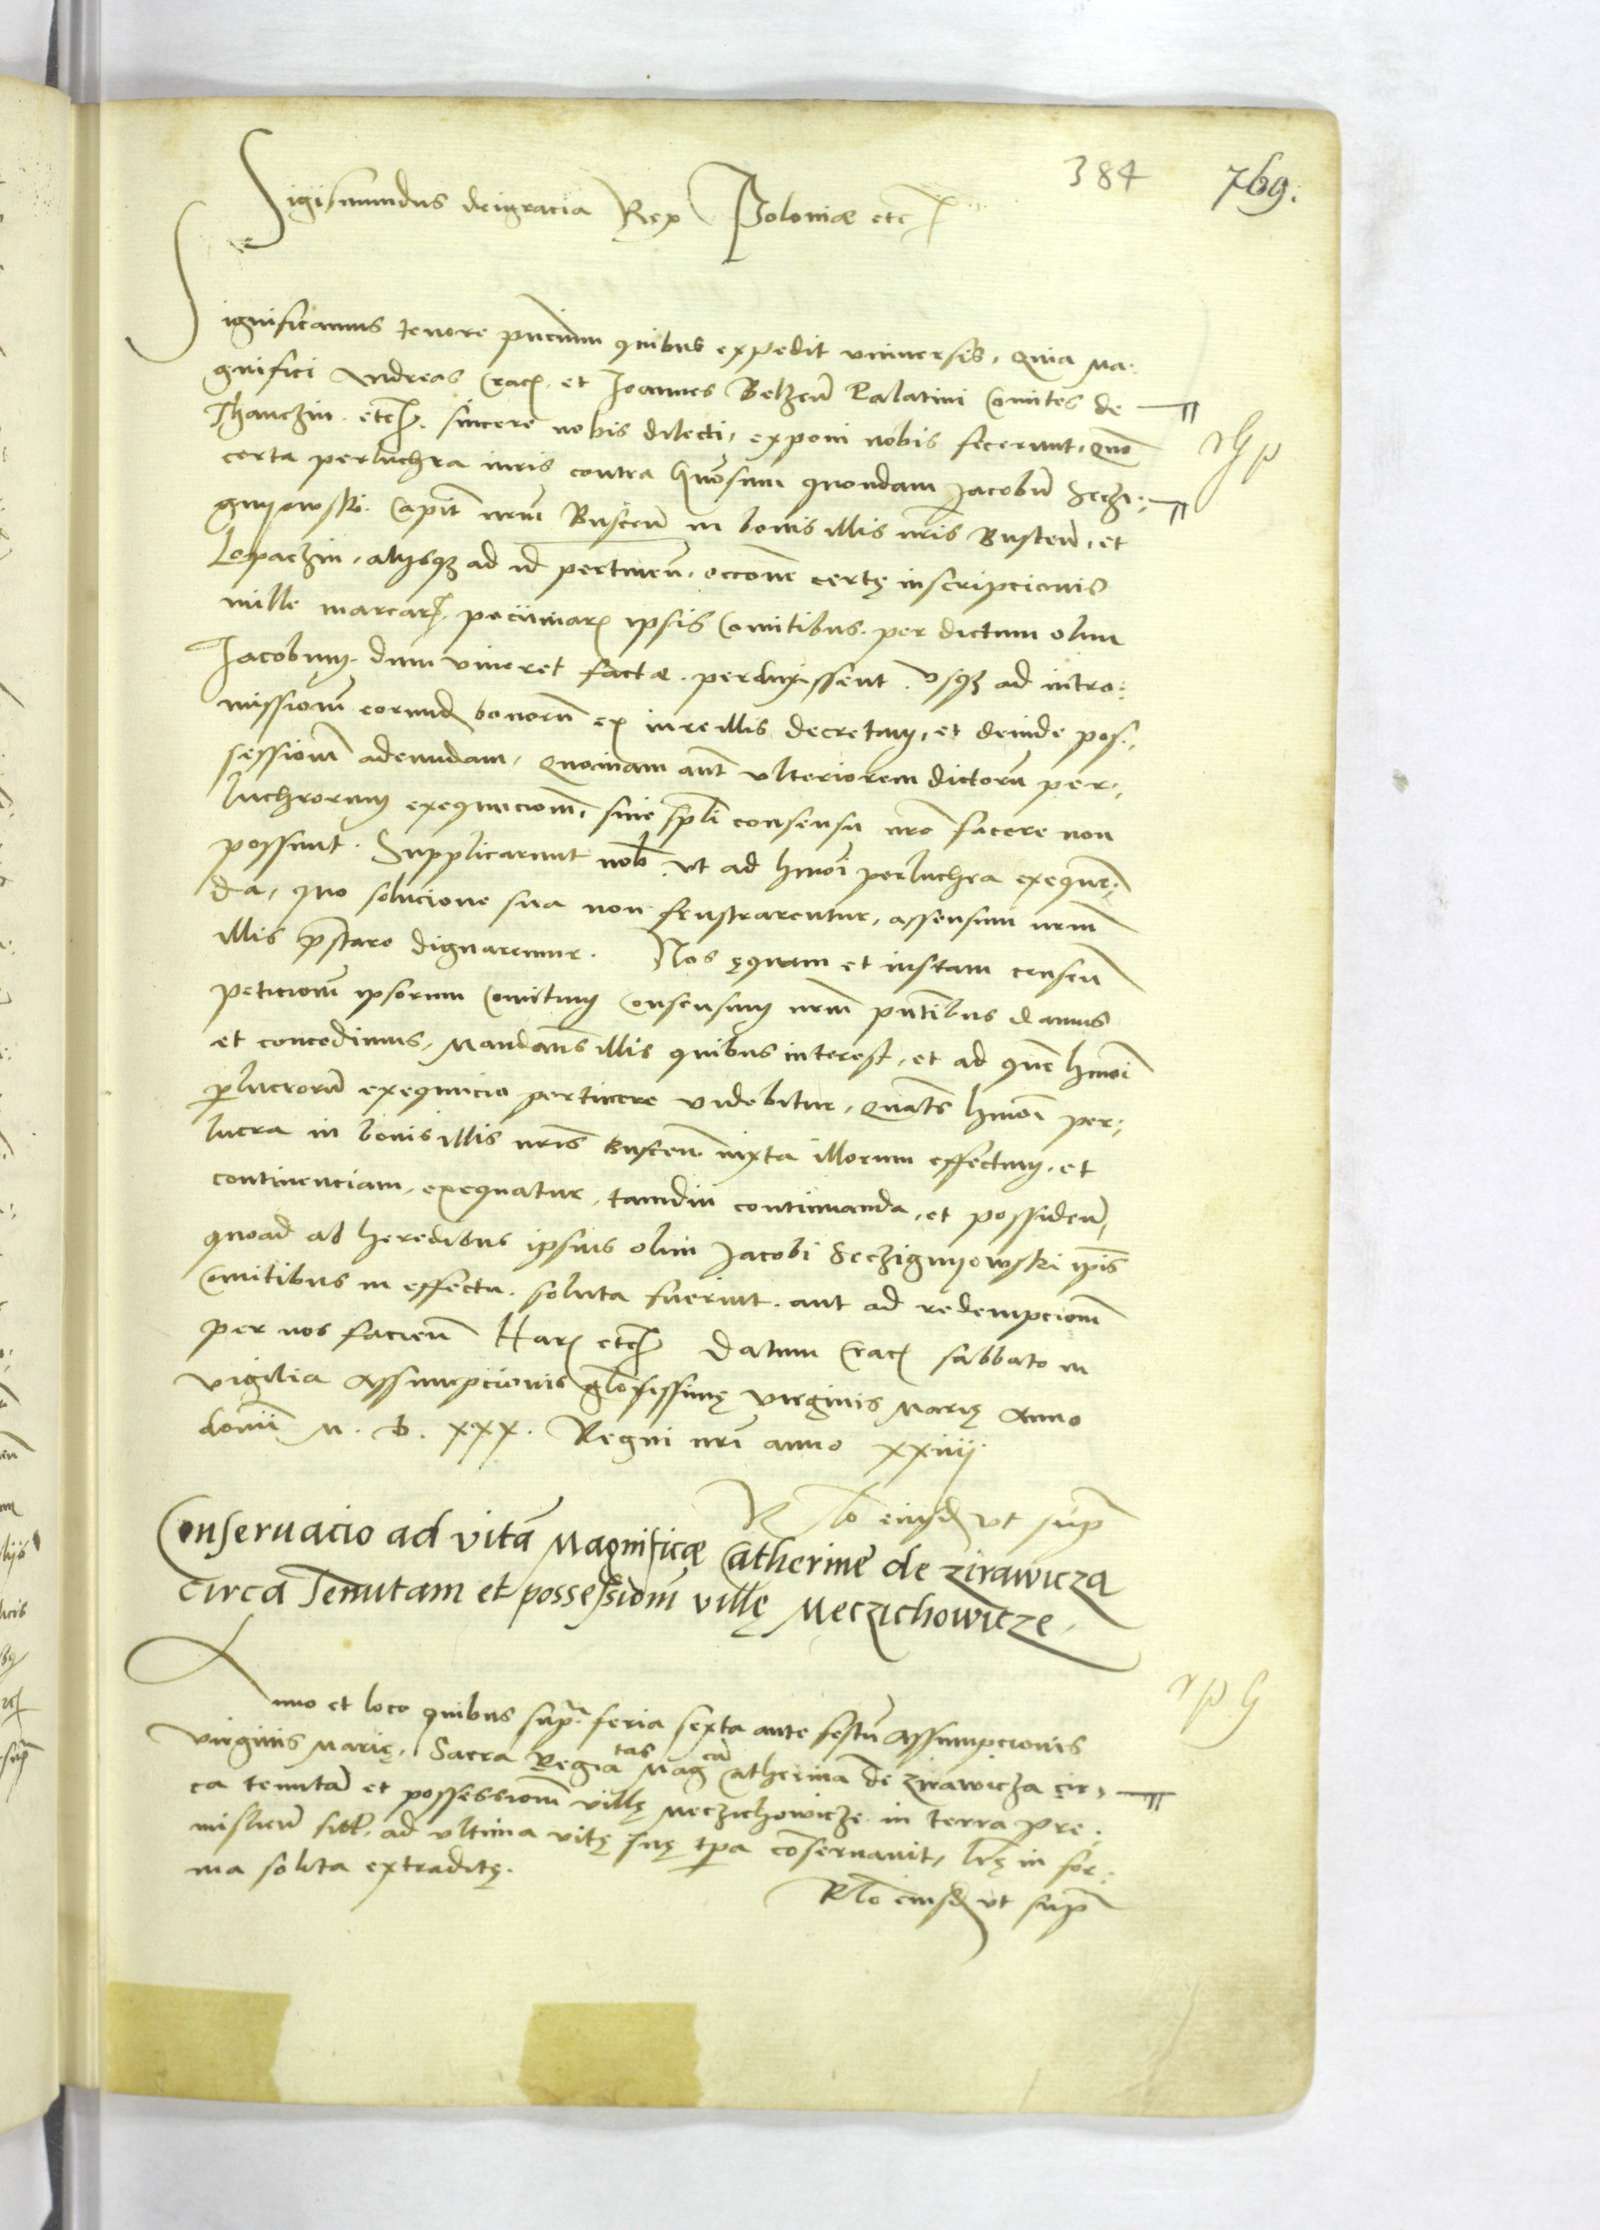 384 769.
Sigismundus dei gracia Rex Poloniæ etc
Significamus tenore pncium quibus expedit vniuersis, Quia Ma-
gnifici Andreas Crac. et Joannes Belzen Palatini Comites de
Thanczin etc. sincere nobis dilecti, exponi nobis fecerunt, quo
certa perluchra iuris contra quondam Jacobu Seczi-
gnyowski Capit nrum Buscen in bonis illis nris Busten, et
Lopaczin, alijsq ad id pertinen. occone certę inscripcionis
mille marcar. pecuniar ipsis Comitibus per dictum olim
Jacobum dum viueret factæ perduxissent vsq ad intro-
missionem eorund bonoru ex iure illis decretam, et deinde pos-
sessionem adeundam, Quoniam aut vlteriorem dictoru per-
luchrorum exequucionem, sine spli consensu nro facere non
possunt. Supplicarunt nob. vt ad hmoi perluchra exequen-
da, quo solucione sua non frustrarentur, assensum nrum
illis pstare dignaremur. Nos ęquam et iustam censen
peticionem ipsorum Comitum Consensum nrum pntibus damus
et concedimus, Mandans illis quibus interest, et ad que hmoi
plucroru exequucio pertinere videbitur, quats hmoi per-
lucra in bonis illis nris Buscen iuxta illorum effectum, et
continenciam, exequatur, tamdiu continuanda, et possiden,
quoad ab heredibus ipsius olim Jacobi Seczignyowski ipis
Comitibus in effectu soluta fuerint. aut ad redempcionem
per nos facien Har etc Datum Crac sabbato in
vigilia Assumpcionis glosissimę virginis Marię Anno
domi M. D. XXX. Regni nri anno xxiiij.
Rlo eiusd vt sup
Conseruacio ad vitam Magnificæ Catherine de Zirawicza
circa Tenutam et possessionem villę Meczichowicze.
Anno et loco quibus supra feria sexta ante festu Assumpcionis
virginis Marię, Sacra Regia tas Mag cam Catherinam de Zirawicza cir-
ca tenutam et possessionem villę Meczichowicze in terra Pre-
mislien sit. ad vltima vitę suę tpa conseruauit, lrę in for-
ma solita extraditę.
Rlo eiusd vt sup